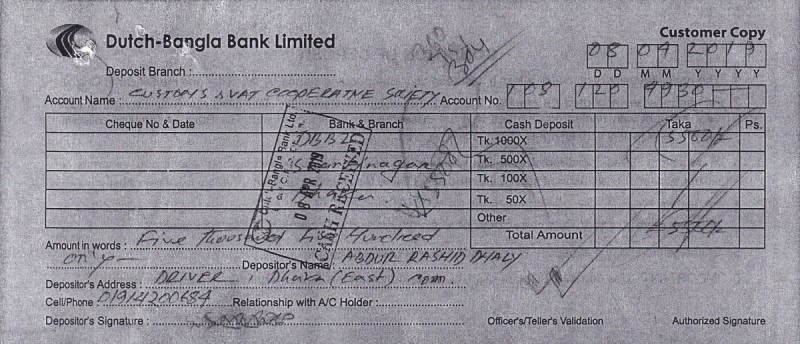 Dutch-Bangla Bank Limited
Customer Copy
08 04 2019
D D M M Y Y Y Y
Deposit Branch :
Account Name : CUSTOMS & VAT COOPERATIVE SOCIETY Account No. 108 120
Cheque No & Date Bank & Branch Cash Deposit Taka Ps.
DBBL Tk. 1000X
Tk. 500X
Tk. 100X
Tk. 50X
Other
Total Amount
08 APR 2019
CASH RECEIVED
Amount in words : Five thousand Five Hundred
only
Depositor's Name : ABDUR RASHID DHALY
Depositor's Address : DRIVER, Dhaka (East) com.
Cell/Phone : 01914200684 Relationship with A/C Holder :
Depositor's Signature : Officer's/Teller's Validation Authorized Signature